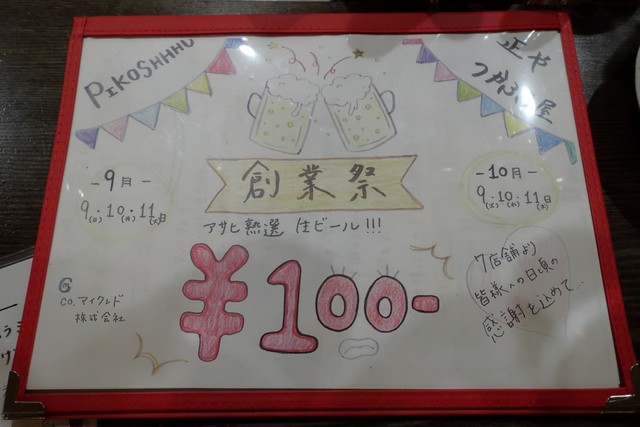 PIKOSHHHU
正や
創業祭
アサヒ熟選 生ビール!!!
¥100-
-9月-
9(日)・10(月)・11(火)日
-10月-
9(火)・10(水)・11(木)日
7店舗より
皆様への日頃の
感謝を込めて...
CO.マイクルド
株式会社